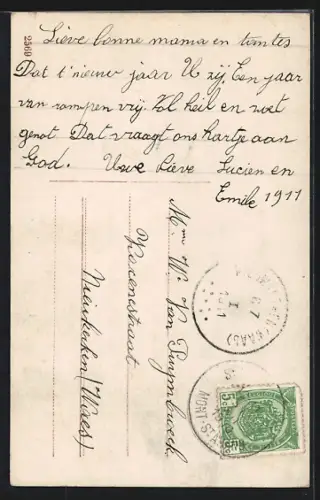 2569
Lieve bonne mama en tantes
Dat t'nieuw jaar U zij Een jaar
van rampen vrij Vol heil en zoet
genot Dat vraagt ons hartje aan
God. Uwe lieve Lucien en
Emile 1911
Mme Wwe Van Puymbroeck
Nieukerken (Waes)
(WAAS)
1911
MONT-S
5